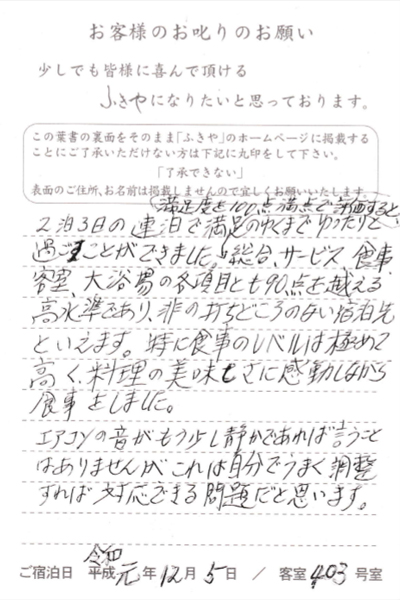 お客様のお叱りのお願い
少しでも皆様に喜んで頂ける
ふきやになりたいと思っております。
この葉書の裏面をそのまま「ふきや」のホームページに掲載する
ことにご了承いただけない方は下記に丸印をして下さい。
「了承できない」
表面のご住所、お名前は掲載しませんので宜しくお願いいたします。
満足度を100点満点で評価すると、
2泊3日の連泊で満足のゆくまでゆったりと
過ごすことができました。総合、サービス、食事、
客室、大浴場の各項目とも90点を越える
高水準であり、非の打ちどころのない宿泊先
といえます。特に食事のレベルは極めて
高く、料理の美味しさに感動しながら
食事をしました。
エアコンの音がもう少し静かであれば言うこと
はありませんが、これは自分でうまく調整
すれば対応できる問題だと思います。
令和
ご宿泊日 平成元年12月5日 / 客室403号室